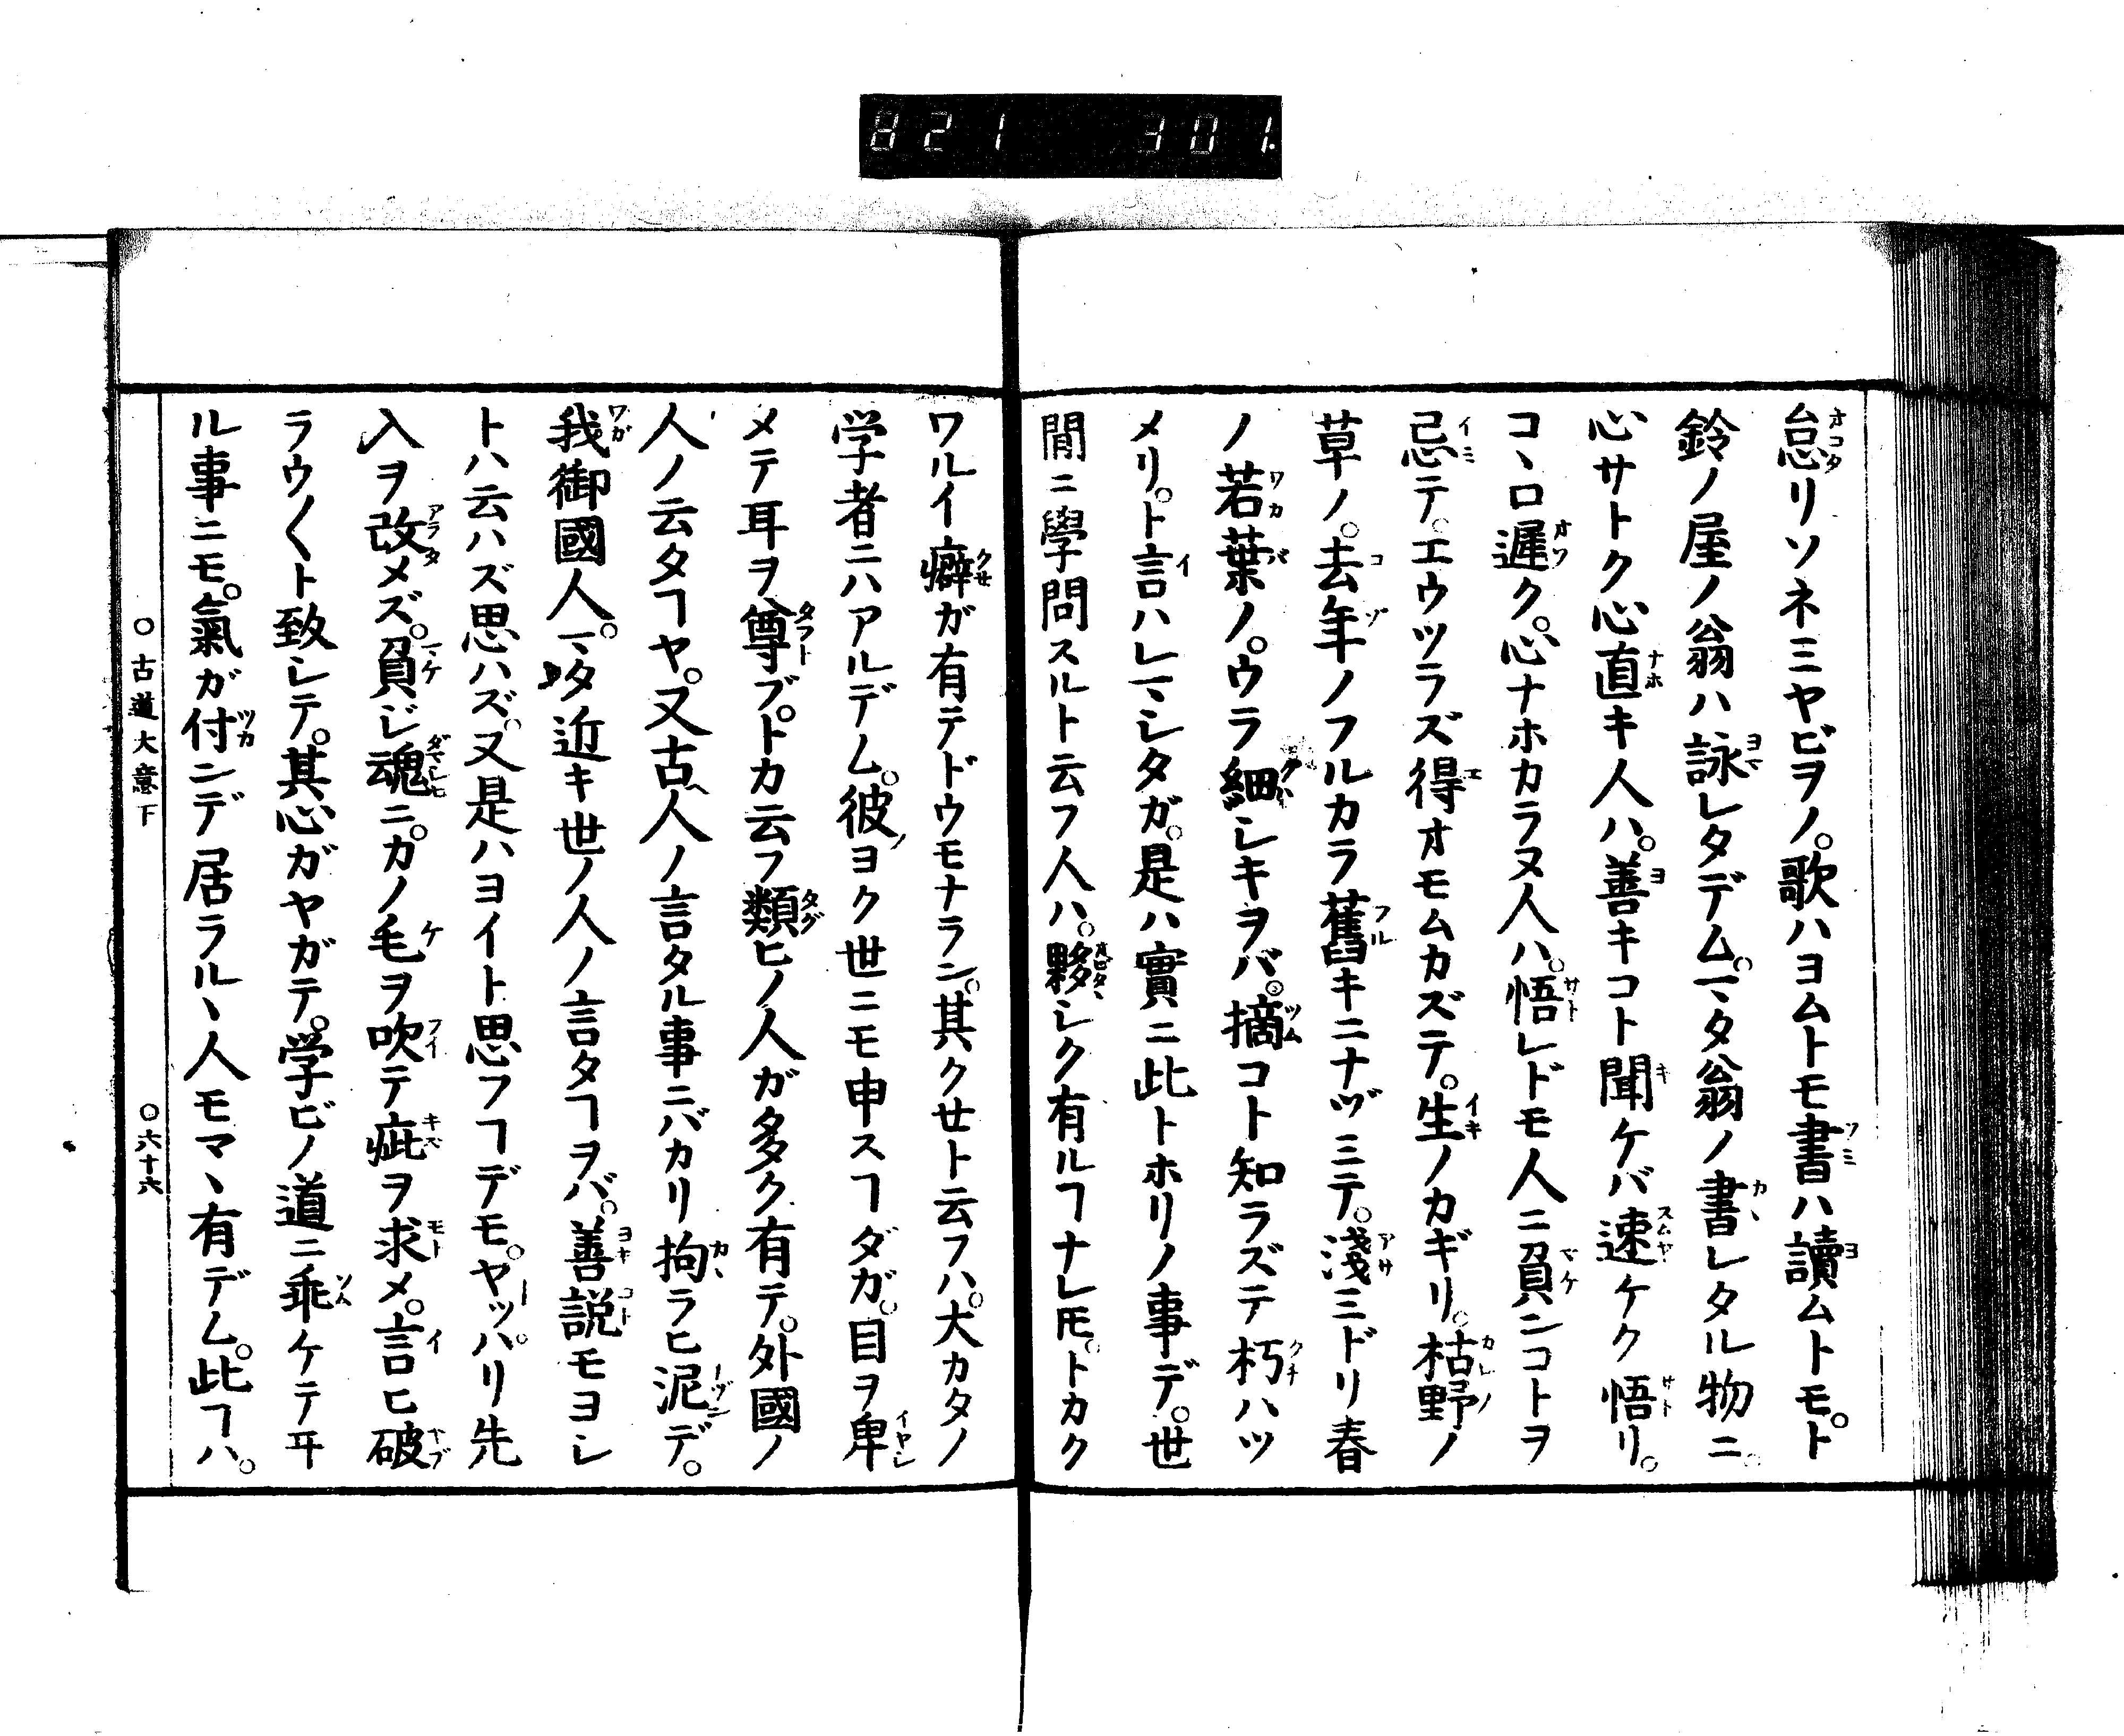 821 301.
怠リソネミヤビヲノ。歌ハヨムトモ書ハ讀ムトモ。ト
鈴ノ屋ノ翁ハ詠レタデム。マタ翁ノ書レタル物ニ。
心サトク心直キ人ハ。善キコト聞ケバ速ケク悟リ。
コヽロ遲ク。心ナホカラヌ人ハ。悟レドモ人ニ負ンコトヲ
忌テ。エウツラズ得オモムカズテ。生ノカギリ。枯野ノ
草ノ。去年ノフルカラ舊キニナヅミテ。淺ミドリ春
ノ若葉ノ。ウラ細シキヲバ。摘コト知ラズテ朽ハツ
メリ。ト言ハレマシタガ。是ハ實ニ此トホリノ事デ。世
間ニ學問スルト云フ人ハ。夥シク有ルヿナレ𪜈。トカク
ワルイ癖ガ有テドウモナラン。其クセト云フハ。大カタノ
学者ニハアルデム。彼ノヨク世ニモ申スヿダガ。目ヲ卑
メテ耳ヲ尊ブ。トカ云フ類ヒノ人ガ多ク有テ。外國ノ
人ノ云タヿヤ。又古人ノ言タル事ニバカリ拘ラヒ泥デ。
我御國人。マタ近キ世ノ人ノ言タヿヲバ。善説モヨシ
トハ云ハズ思ハズ。又是ハヨイト思フヿデモ。ヤッパリ先
入ヲ改メズ。負ジ魂ニ。カノ毛ヲ吹テ疵ヲ求メ。言ヒ破
ラウ〳〵ト致シテ。其心ガヤガテ。学ビノ道ニ乖ケテヰ
ル事ニモ。氣ガ付ンデ居ラルヽ人モマヽ有デム。此ヿハ。
○古道大意下 ○六十六